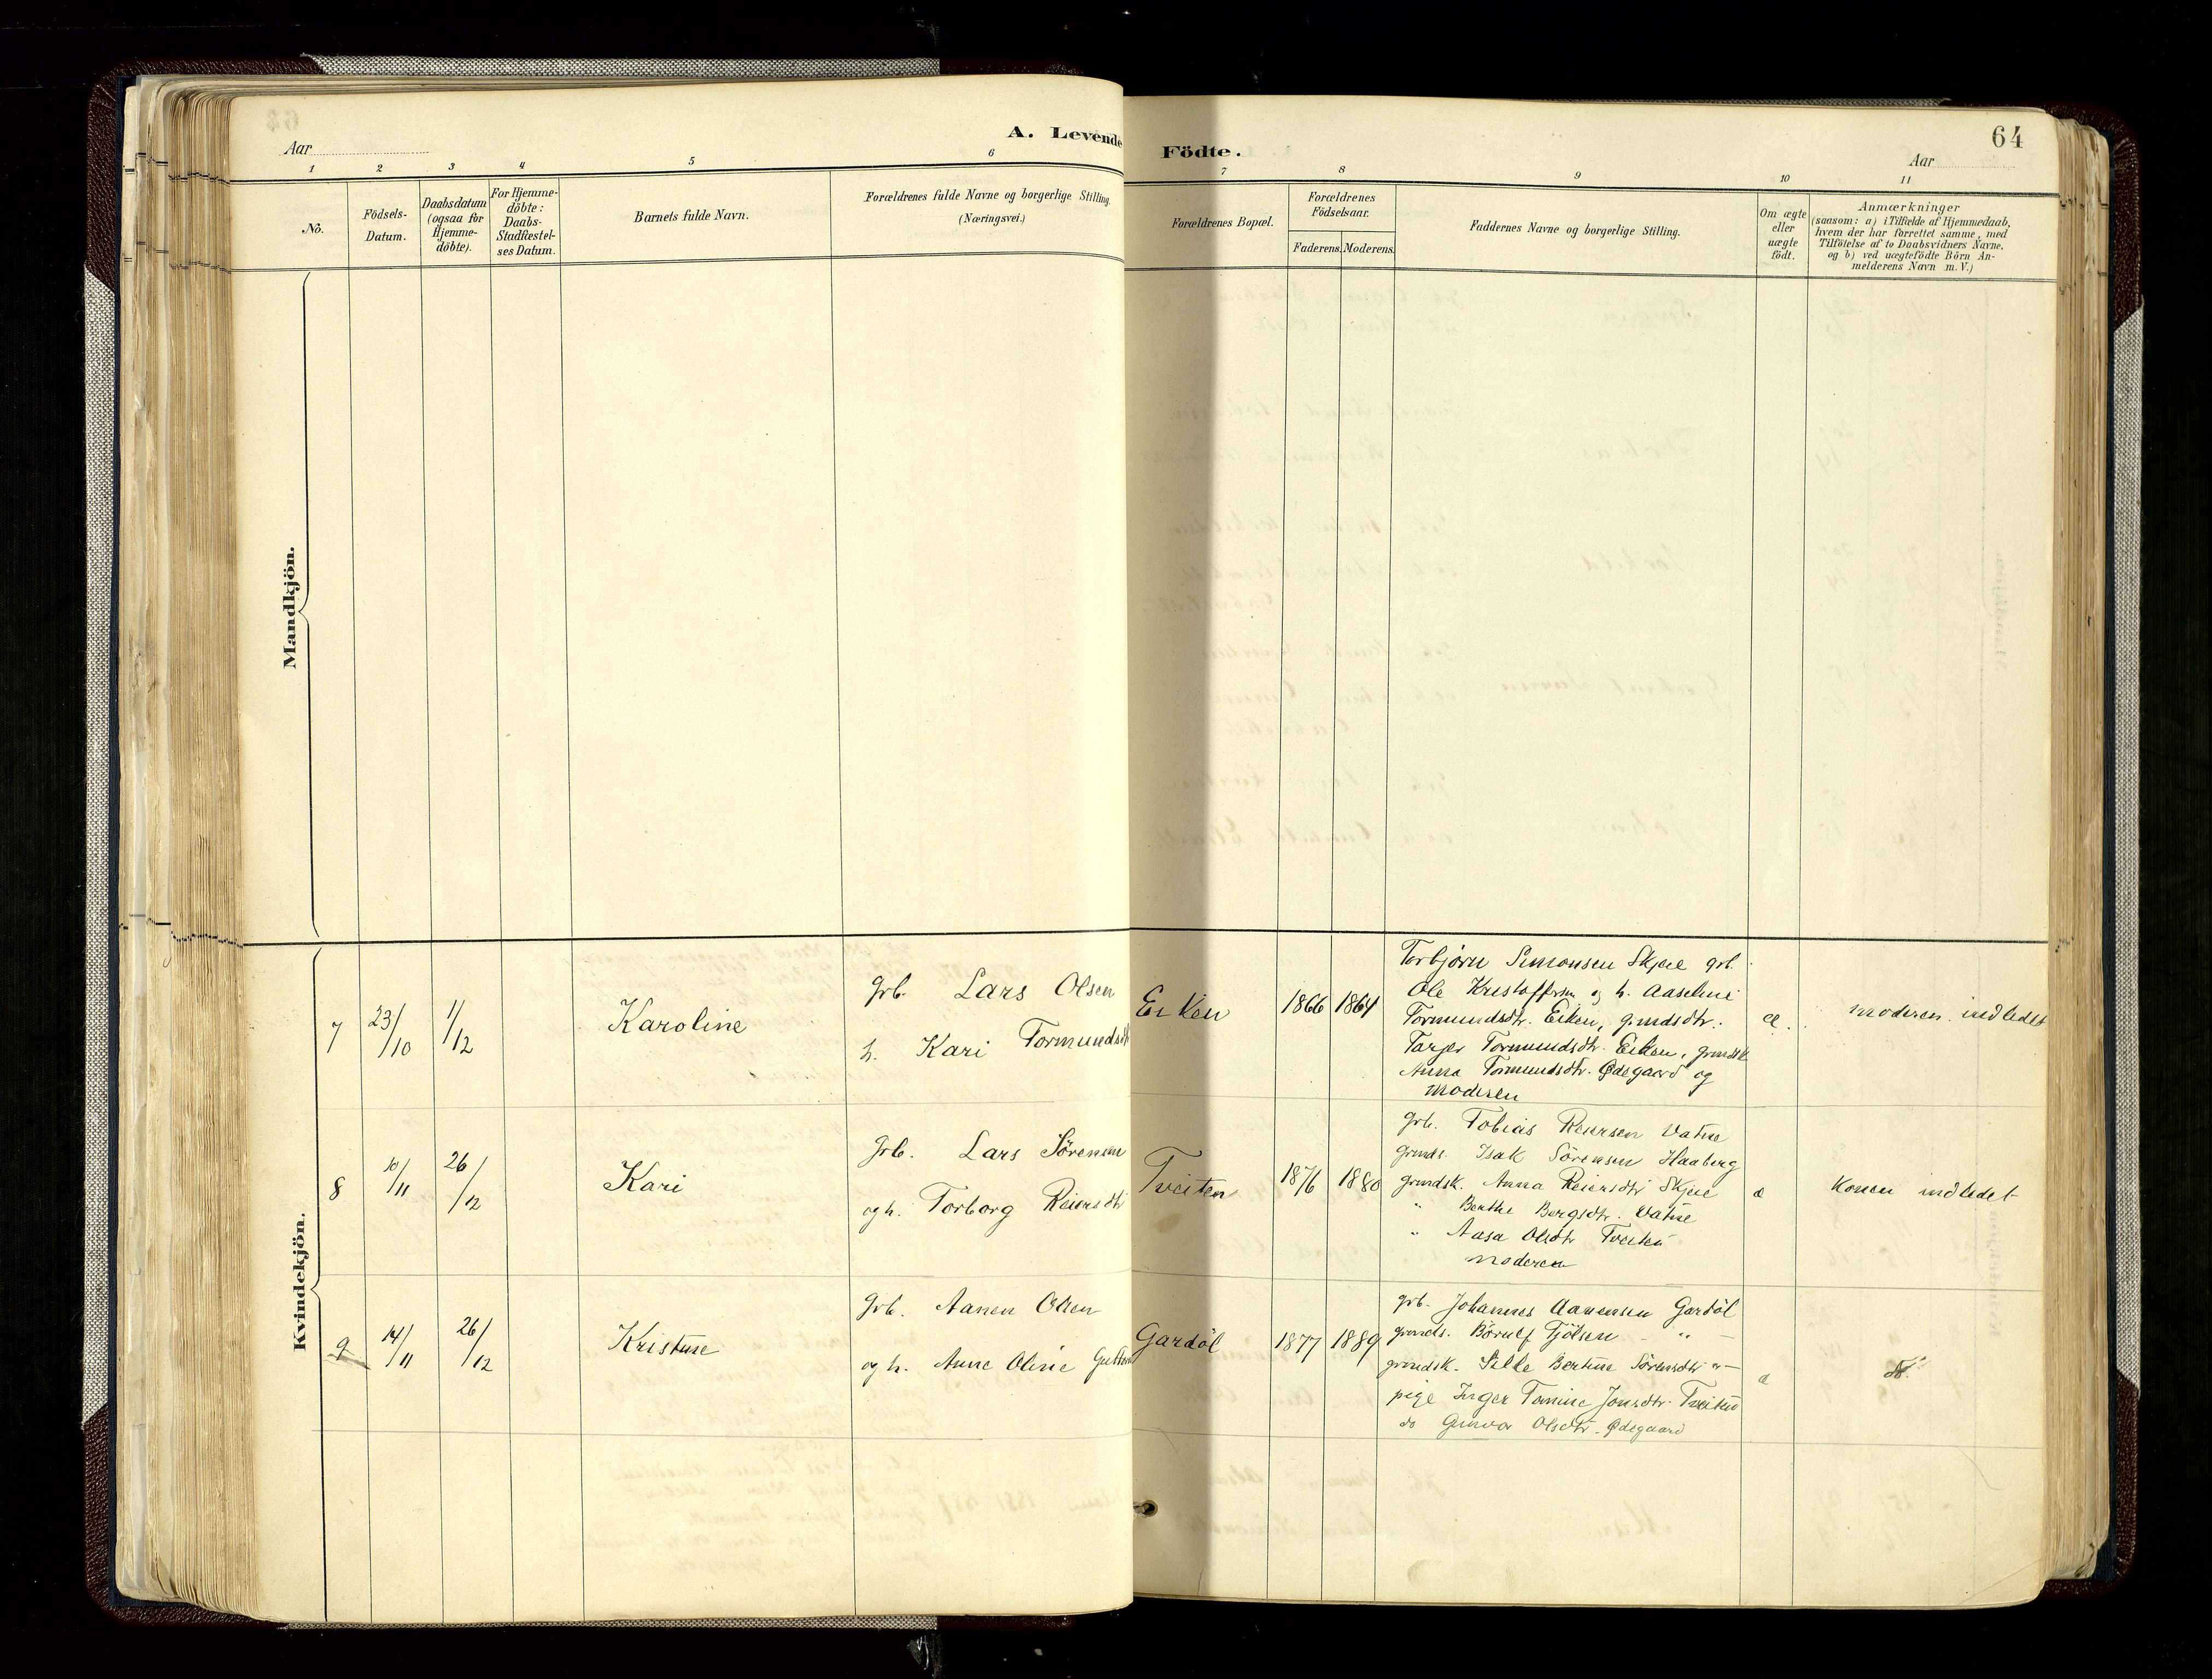 A. Levende Födte.
64
Aar
Aar
1 2 3 4 5 6 7 8 9 10 11
No.
Födsels-Datum.
Daabsdatum (ogsaa for Hjemme-döbte).
For Hjemme-döbte: Daabs-Stadfæstel-ses Datum.
Barnets fulde Navn.
Forældrenes fulde Navne og borgerlige Stilling.
(Næringsvei.)
Forældrenes Bopæl.
Forældrenes Födselsaar.
Faderens. Moderens.
Faddernes Navne og borgerlige Stilling.
Om ægte eller uægte födt.
Anmærkninger
(saasom: a) i Tilfælde af Hjemmedaab,
hvem der har forrettet samme, med
Tilföielse af to Daabsvidners Navne.
og b) ved uægtefödte Börn An-
melderens Navn m. V.)
Mandkjön.
Kvindekjön.
7 23/10 1/12 Karoline
Grb. Lars Olsen
h. Kari Tormundsdt
Eiken 1866 1864
Torbjørn Simonsen Skjeie grb.
Ole Kristoffersen og h. Aaseline
Tormundsdtr. Eiken, gmdsdtr.
Tarjer Tormundsdtr. Eiken, grmdsk
Anna Tormundsdtr. Ødegaard og
moderen
æ.
moderen indledet
8 10/11 26/12 Kari
Grb. Lars Sörensen
og h. Torborg Reiersdtr
Tveiten 1876 1880
grb. Tobias Reiersen Vatne
grmds. Isak Sörensen Haaberg
grmdsk. Anna Reiersdtr Skjeie
" Berthe Bergsdtr. Vatne
" Aasa Olsdtr Tveiten
moderen
æ
Konen indledet
9 14/11 26/12 Kristine
Grb. Aanen Olsen
og h. Anne Oline
Gardöl 1877 1889
grb. Johannes Aanensen Gardöl
grmds. Börulf Tjölsen - " -
grmdsk. Sille Bertine Sörensdtr
pige Inger Tomine Jonsdtr. Tveiten
do Gunvor Olsdtr. Ødegaard
æ